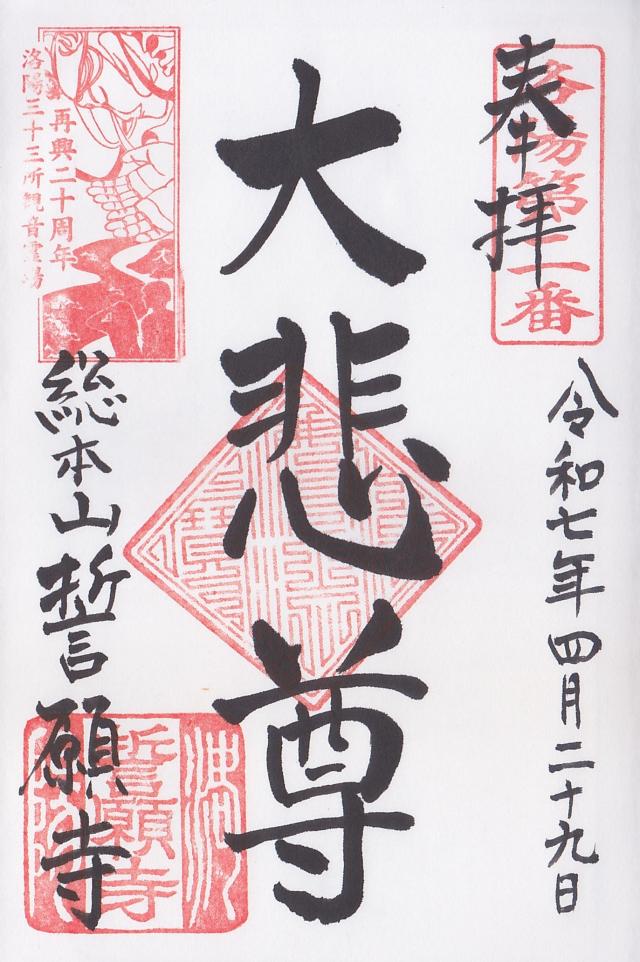 奉拝
洛陽第二番
令和七年四月二十九日
大悲尊
再興二十周年
洛陽三十三所観音霊場
総本山誓願寺
誓願寺